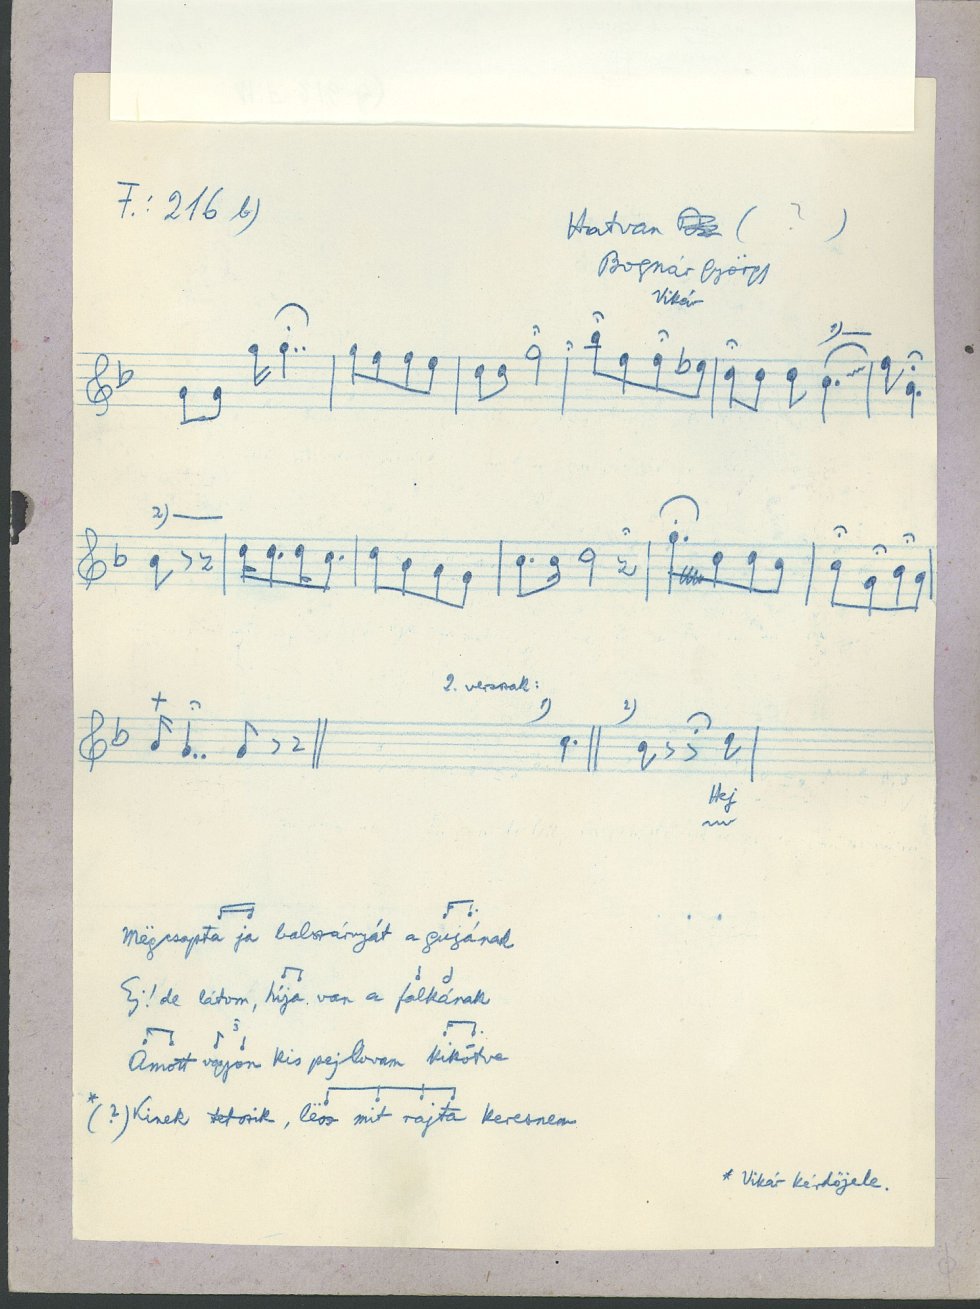 F.: 216 b)
Hatvan ( ? )
Bognár György
Vikár
1)
2)
2. versszak:
1) 2)
Hej
Mëgcsapta ja balszárnyát a gujának
Ej! de látom, híja van a falkának
Amott vagyon kis pej lovam kikötve
*(?) Kinek tetszik, lëssz mit rajta keresnem
* Vikár kérdőjele.